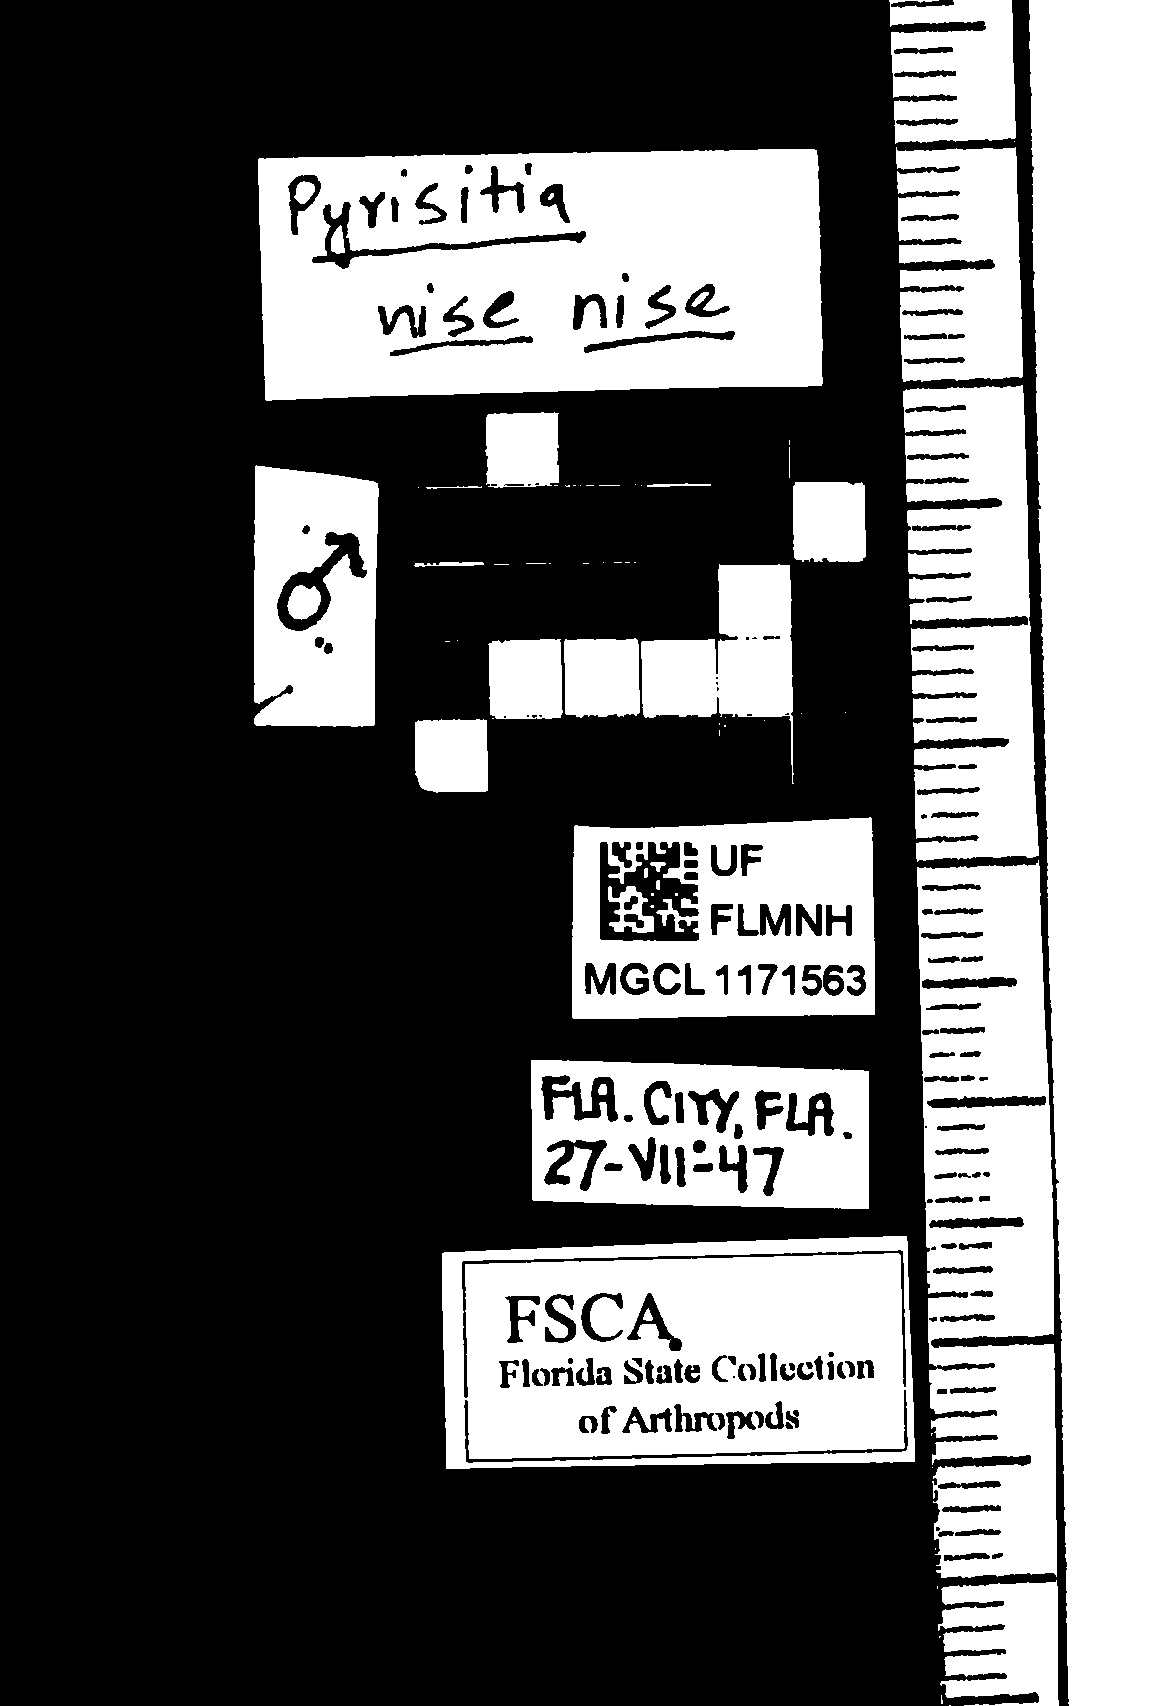 Pyrisitia
nise nise
♂
UF
FLMNH
MGCL 1171563
FLA. CITY, FLA.
27-VII-47
FSCA
Florida State Collection
of Arthropods